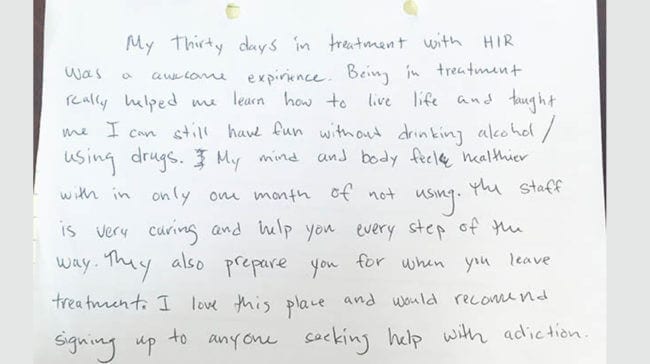 My Thirty days in treatment with HIR
was a awesome expirience. Being in treatment
really helped me learn how to live life and taught
me I can still have fun without drinking alcohol/
using drugs. My mind and body feels healthier
with in only one month of not using. The staff
is very caring and help you every step of the
way. They also prepare you for when you leave
treatment. I love this place and would recomend
signing up to anyone seeking help with adiction.